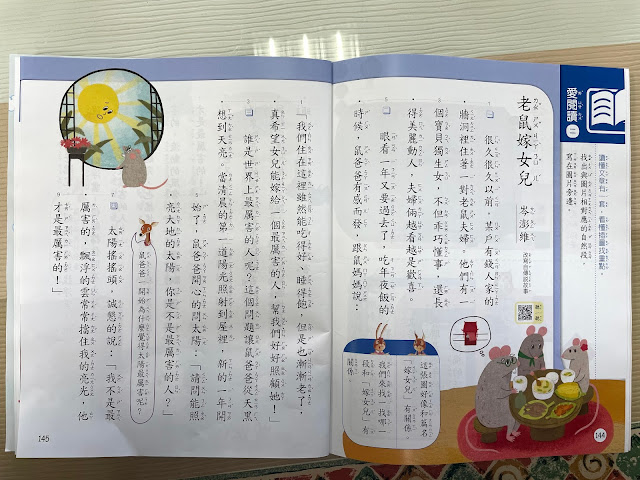 愛閱讀 二
讀懂文章有一套：看懂插圖找重點
找出與圖片相對應的自然段，
寫在圖片旁邊。
老鼠嫁女兒
岑澎維
改寫自傳說故事
很久很久以前，某戶有錢人家的
牆洞裡住著一對老鼠夫婦，他們有一
個寶貝獨生女，不但乖巧懂事，還長
得美麗動人，夫婦倆越看越是歡喜。
眼看一年又要過去了，吃年夜飯的
時候，鼠爸爸有感而發，跟鼠媽媽說：
這張圖好像和篇名
「嫁女兒」有關係。
我們來找一找哪一
段「嫁女兒」有
關係。
144
「我們住在這裡雖然能吃得好、睡得飽，但是也漸漸老了，
真希望女兒能嫁給一個最厲害的人，幫我們好好照顧她！」
誰是世界上最厲害的人呢？這個問題讓鼠爸爸從天黑
想到天亮。當清晨的第一道陽光照射到屋裡，新的一年開
始了，鼠爸爸問又大又圓的太陽：「請問能照
亮大地的太陽，你是不是最厲害的人？」
鼠爸爸一開始為什麼覺得太陽最厲害呢？
太陽搖搖頭，誠懇的說：「我不是最
厲害的，飄浮的雲常常擋住我的亮光，他
才是最厲害的！」
145